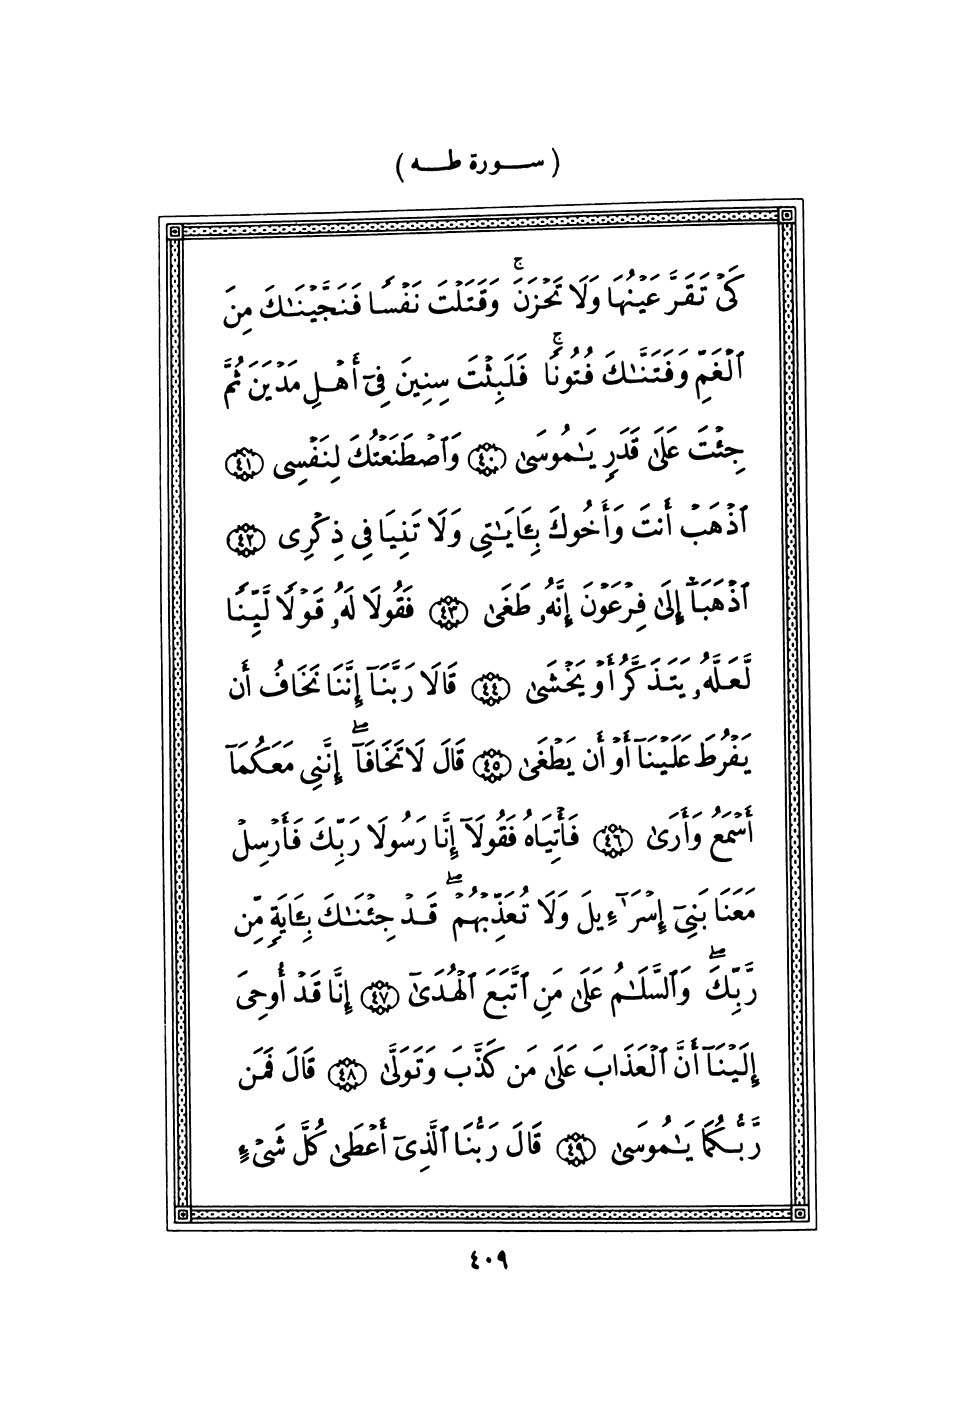 ( ســورة طــه )
كَىْ تَقَرَّ عَيْنُهَا وَلَا تَحْزَنَ ۚ وَقَتَلْتَ نَفْسًا فَنَجَّيْنَـٰكَ مِنَ
ٱلْغَمِّ وَفَتَنَّـٰكَ فُتُونًا ۚ فَلَبِثْتَ سِنِينَ فِىٓ أَهْلِ مَدْيَنَ ثُمَّ
جِئْتَ عَلَىٰ قَدَرٍ يَـٰمُوسَىٰ ٤٠ وَٱصْطَنَعْتُكَ لِنَفْسِى ٤١
ٱذْهَبْ أَنتَ وَأَخُوكَ بِـَٔايَـٰتِى وَلَا تَنِيَا فِى ذِكْرِى ٤٢
ٱذْهَبَآ إِلَىٰ فِرْعَوْنَ إِنَّهُۥ طَغَىٰ ٤٣ فَقُولَا لَهُۥ قَوْلًا لَّيِّنًا
لَّعَلَّهُۥ يَتَذَكَّرُ أَوْ يَخْشَىٰ ٤٤ قَالَا رَبَّنَآ إِنَّنَا نَخَافُ أَن
يَفْرُطَ عَلَيْنَآ أَوْ أَن يَطْغَىٰ ٤٥ قَالَ لَا تَخَافَآ ۖ إِنَّنِى مَعَكُمَآ
أَسْمَعُ وَأَرَىٰ ٤٦ فَأْتِيَاهُ فَقُولَآ إِنَّا رَسُولَا رَبِّكَ فَأَرْسِلْ
مَعَنَا بَنِىٓ إِسْرَٰٓءِيلَ وَلَا تُعَذِّبْهُمْ ۖ قَدْ جِئْنَـٰكَ بِـَٔايَةٍ مِّن
رَّبِّكَ ۖ وَٱلسَّلَـٰمُ عَلَىٰ مَنِ ٱتَّبَعَ ٱلْهُدَىٰٓ ٤٧ إِنَّا قَدْ أُوحِىَ
إِلَيْنَآ أَنَّ ٱلْعَذَابَ عَلَىٰ مَن كَذَّبَ وَتَوَلَّىٰ ٤٨ قَالَ فَمَن
رَّبُّكُمَا يَـٰمُوسَىٰ ٤٩ قَالَ رَبُّنَا ٱلَّذِىٓ أَعْطَىٰ كُلَّ شَىْءٍ
٤٠٩